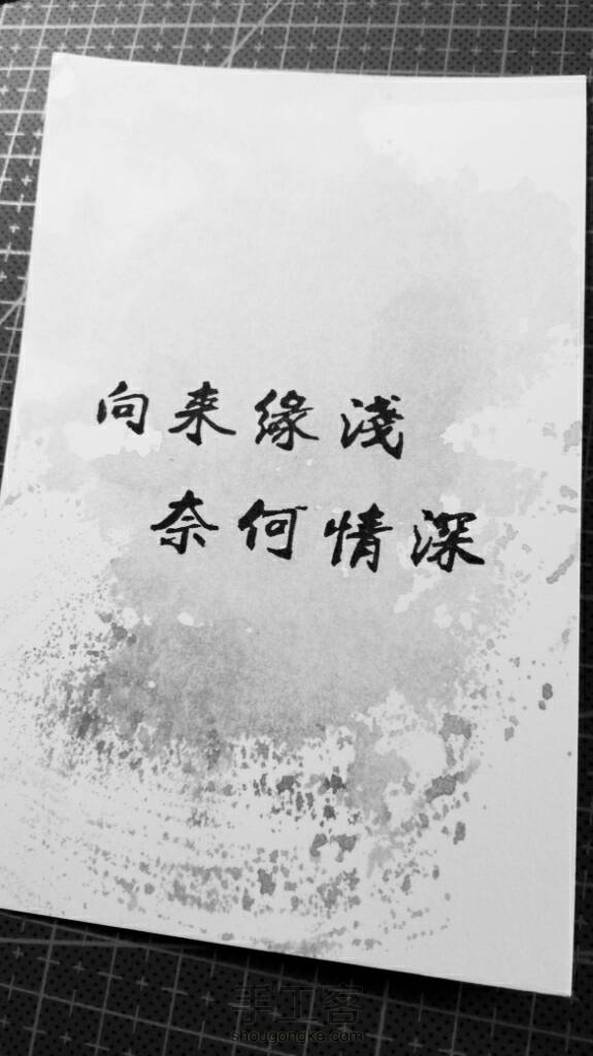 向来緣淺
奈何情深
手工客
shougongke.com